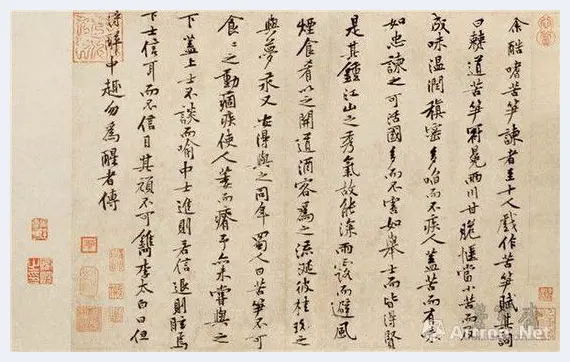 余酷嗜苦笋諫者至十人戲作苦笋賦其詞
曰僰道苦笋冠冕兩川甘脆愜當小苦而反
成味溫潤縝密多啗而不疾人蓋苦而有味
如忠諫之可活國多而不害如舉士而皆得賢
是其鍾江山之秀氣故能深雨露而避風
煙食肴以之開道酒客為之流涎彼桂玫之
與夢永又安得與之同年蜀人曰苦笋不可
食〻之動痼疾使人萎而瘠予亦未嘗與之
下蓋上士不談而喻中士進則若信退則眩焉
下士信耳而不信目其頑不可鐫李太白曰但
得醉中趣勿為醒者傳
Artron.Net